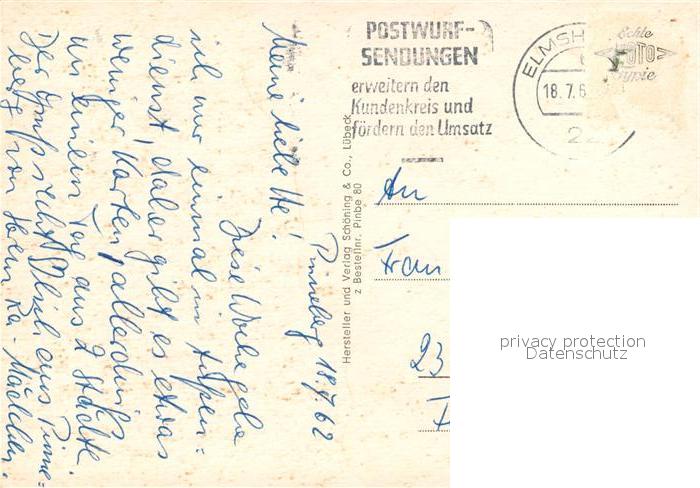 POSTWURF-
SENDUNGEN
erweitern den
Kundenkreis und
fördern den Umsatz
ELMSH
18.7.6
Echte
FOTO
An
Frau
23
Hersteller und Verlag Schöning & Co., Lübeck
z Bestellnr. Pinbe 80
privacy protection
Datenschutz
Pinneberg 18.7.62
Meine liebe
Diese Woche gehe
ich nur einmal in
dienst, daher gibt es etwas
weniger Karten, allerdings
an einem Tag aus 2 Städte
Der Gruß aus Pinne=
berg von Herm